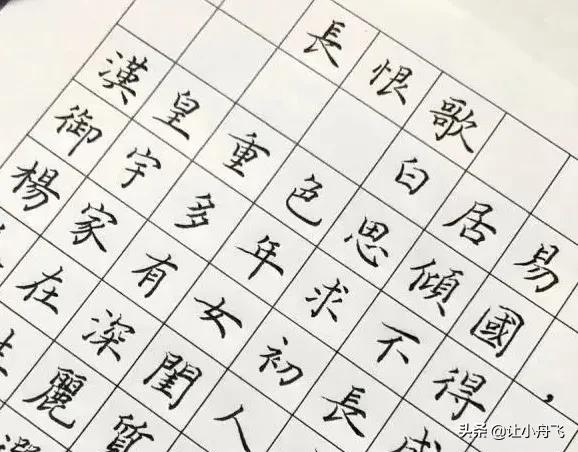 長恨歌
白居易
漢皇重色思傾國，
御宇多年求不得
楊家有女初長成
在深閨人
麗質
头条 @让小舟飞